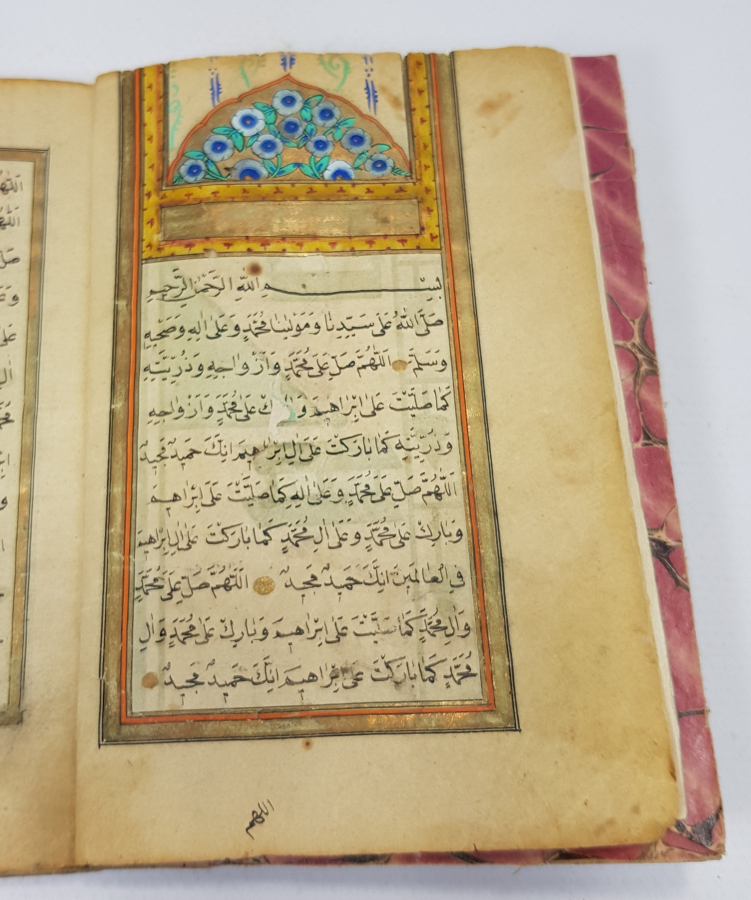 بِسْمِ اللهِ الرَّحْمٰنِ الرَّحِيمِ
صَلَّى اللهُ عَلٰى سَيِّدِنَا وَمَوْلٰينَا مُحَمَّدٍ وَعَلٰى اٰلِهِ وَصَحْبِهِ
وَسَلَّمَ اَللّٰهُمَّ صَلِّ عَلٰى مُحَمَّدٍ وَاَزْوَاجِهِ وَذُرِّيَّتِهِ
كَمَا صَلَّيْتَ عَلٰى اِبْرَاهِيمَ وَبَارِكْ عَلٰى مُحَمَّدٍ وَاَزْوَاجِهِ
وَذُرِّيَّتِهِ كَمَا بَارَكْتَ عَلٰى اٰلِ اِبْرَاهِيمَ اِنَّكَ حَمِيدٌ مَجِيدٌ
اَللّٰهُمَّ صَلِّ عَلٰى مُحَمَّدٍ وَعَلٰى اٰلِهِ كَمَا صَلَّيْتَ عَلٰى اِبْرَاهِيمَ
وَبَارِكْ عَلٰى مُحَمَّدٍ وَعَلٰى اٰلِ مُحَمَّدٍ كَمَا بَارَكْتَ عَلٰى اٰلِ اِبْرَاهِيمَ
فِى الْعَالَمِينَ اِنَّكَ حَمِيدٌ مَجِيدٌ اَللّٰهُمَّ صَلِّ عَلٰى مُحَمَّدٍ
وَاٰلِ مُحَمَّدٍ كَمَا صَلَّيْتَ عَلٰى اِبْرَاهِيمَ وَبَارِكْ عَلٰى مُحَمَّدٍ وَاٰلِ
مُحَمَّدٍ كَمَا بَارَكْتَ عَلٰى اِبْرَاهِيمَ اِنَّكَ حَمِيدٌ مَجِيدٌ
اللهم